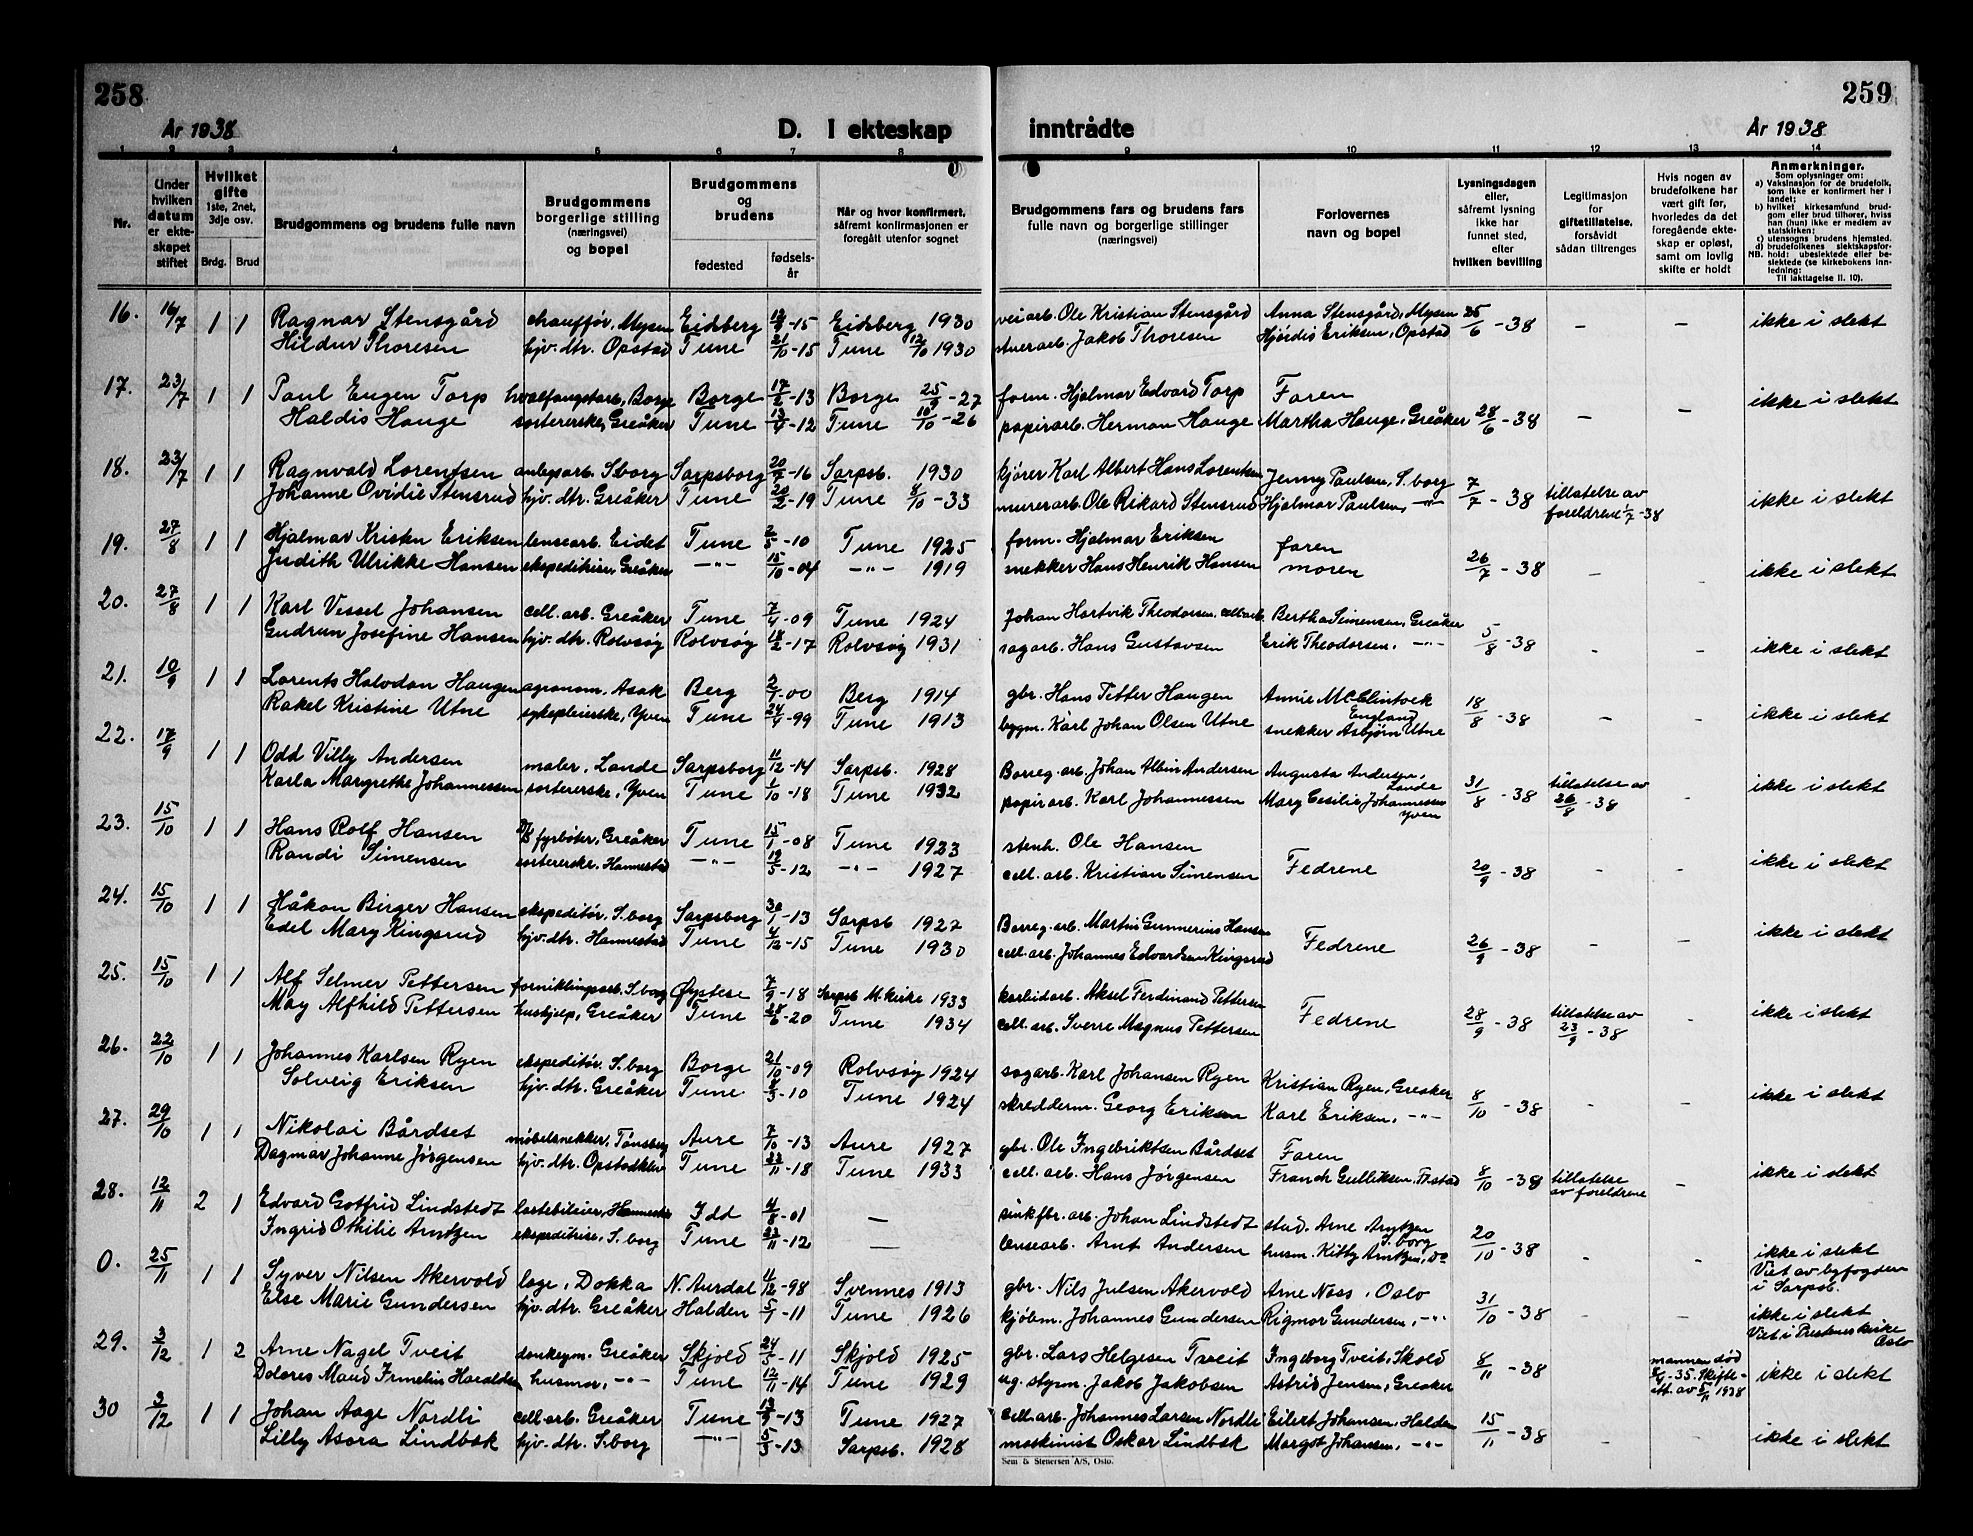 258
259
År 1938
D. I ekteskap
inntrådte
År 1938
1 2 3 4 5 6 7 8 9 10 11 12 13 14
Nr.
Under hvilken datum er ekteskapet stiftet
Hvilket gifte
1ste, 2net, 3dje osv.
Brdg. Brud
Brudgommens og brudens fulle navn
Brudgommens borgerlige stilling (næringsvei) og bopel
Brudgommens og brudens
fødested fødselsår
Når og hvor konfirmert, såfremt konfirmasjonen er foregått utenfor sognet
Brudgommens fars og brudens fars fulle navn og borgerlige stillinger (næringsvei)
Forlovernes navn og bopel
Lysningsdagen eller, såfremt lysning ikke har funnet sted, efter hvilken bevilling
Legitimasjon for giftetillatelse, forsåvidt sådan tiltrenges
Hvis nogen av brudefolkene har vært gift før, hvorledes da det foregående ekteskap er opløst, samt om lovlig skifte er holdt
Anmerkninger.
Som oplysninger om:
a) Vaksinasjon for de brudefolk, som ikke er konfirmert her i landet;
b) hvilket kirkesamfund brudgom eller brud tilhører, hviss han (hun) ikke er medlem av statskirken;
c) utensogns brudens hjemsted.
d) brudefolkenes slektskapsforhold: ubeslektede eller beslektede (se kirkebokens innledning:
NB.
Til iakttagelse II. 10).
16. 16/7 1 1 Ragnar Stensgård chauffør, Mysen Eidsberg -15 Eidsberg 1930 veiarb. Ole Kristian Stensgård Anna Stensgård, Mysen 25/6 - 38 - - ikke i slekt
Hildur Thoresen hjv. dtr. Opstad Tune 21/10 -15 Tune 12/10 1930 stuerarb. Jakob Thoresen Hjørdis Eriksen, Opstad
17. 23/7 1 1 Paul Eugen Torp hvalfangstarb, Borge Borge 17/2 -13 Borge 25/9 -27 form. Hjalmar Edvard Torp Faren ikke i slekt
Haldis Hauge sortererske, Greåker Tune 13/4 -12 Tune 10/10 -26 papirarb. Herman Hauge Martha Hauge, Greåker 28/6 - 38 - -
18. 23/7 1 1 Ragnvald Lorentsen anlegsarb. S.borg Sarpsborg 20/7 -16 Sarpsb. 1930 kjører Karl Albert Hans Lorentsen Jenny Paulsen, S.borg
Johanne Ovidie Stensrud hjv. dtr. Greåker Tune 20/2 -19 Tune 8/10 -33 murerarb. Ole Rikard Stensrud Hjalmar Paulsen, -"- 7/7 - 38 tillatelse av foreldrene 1/7 -38 ikke i slekt
19. 27/8 1 1 Hjalmar Kristen Eriksen lensearb. Eidet Tune 2/5 -10 Tune 1925 form. Hjalmar Eriksen faren
Judith Ulrikke Hansen ekspeditrise, Greåker -"- 15/10 -04 -"- 1919 snekker Hans Henrik Hansen moren 26/7 - 38 - - ikke i slekt
20. 27/8 1 1 Karl Vessel Johansen cell. arb. Greåker Tune 7/4 -09 Tune 1924 Johan Hartvik Theodorsen, cellarb. Bertha Simensen, Greåker
Gudrun Josefine Hansen hjv. dtr. Rolvsøy Rolvsøy 18/2 -17 Rolvsøy 1931 sagarb. Hans Gustavsen Erik Theodorsen, -"- 5/8 - 38 - - ikke i slekt
21. 10/9 1 1 Lorents Halvdan Haugen agronom, Asak Berg 2/7 -00 Berg 1914 gbr. Hans Petter Haugen Annie McClintock England
Rakel Kristine Utne sykepleierske, Yven Tune 24/4 -99 Tune 1913 bygm. Karl Johan Olsen Utne snekker Asbjørn Utne 18/8 - 38 - - ikke i slekt
22. 17/9 1 1 Odd Villy Andersen maler, Lande Sarpsborg 11/12 -14 Sarpsb. 1928 Borreg. arb. Johan Albin Andersen Augusta Andersen, Lande
Karla Margrethe Johannessen sortererske, Yven Tune 1/10 -18 Tune 1932 papirarb. Karl Johannessen Mary Cecilie Johannessen Yven 31/8 - 38 tillatelse av 26/8 -38 - ikke i slekt
23. 15/10 1 1 Hans Rolf Hansen fyrbøter, Greåker Tune 15/1 -08 Tune 1923 stenh. Ole Hansen
Randi Simensen sortererske, Hannestad -"- 19/5 -12 -"- 1927 cell. arb. Kristian Simensen Fedrene 20/9 - 38 - - ikke i slekt
24. 15/10 1 1 Håkon Birger Hansen ekspeditør, S.borg Sarpsborg 30/1 -13 Sarpsb 1927 Borreg. arb. Martin Gunnerius Hansen
Edel Mary Kingsrud hjv. dtr. Hannestad Tune 4/12 -15 Tune 1930 cell. arb. Johannes Edvardsen Kingsrud Fedrene 26/9 - 38 - - ikke i slekt
25. 15/10 1 1 Alf Selmer Pettersen forniklingsarb. S.borg Øystese 7/9 -18 Sarpsb M.kirke 1933 karbidarb. Aksel Ferdinand Pettersen
May Alfhild Pettersen hushjelp, Greåker Tune 28/6 -20 Tune 1934 cell. arb. Sverre Magnus Pettersen Fedrene 28/9 - 38 tillatelse av 23/9 -38 - ikke i slekt
26. 22/10 1 1 Johannes Karlsen Ryen ekspeditør, S.borg Borge 21/10 -09 Rolvsøy 1924 sagarb. Karl Johansen Ryen Kristian Ryen, Greaker
Solveig Eriksen hjv. dtr. Greåker Tune 8/3 -10 Tune 1924 skredderm. Georg Eriksen Karl Eriksen, -"- 8/10 - 38 - - ikke i slekt
27. 29/10 1 1 Nikolai Bårdset møbelsnekker, Tønsberg Aure 7/10 -13 Aure 1927 gbr. Ole Ingebriktsen Bårdset Faren
Dagmar Johanne Jørgensen hjv. dtr. Opstadklev Tune 23/11 -18 Tune 1933 cell. arb. Hans Jørgensen Franch Gulliksen, F.stad 8/10 - 38 tillatelse av foreldrene - ikke i slekt
28. 12/11 2 1 Edvard Gotfrid Lindstedt lastebileier, Hannestad Idd 4/8 -01 — sinkfbr. arb. Johan Lindstedt stud. Arne Arntzen S.borg
Ingrid Othilie Arntzen ekspeditrise, S.borg Tune 23/11 -12 — lensearb. Arnt Andersen husm. Kitty Arntzen, do 20/10 - 38 - - ikke i slekt Viet av byfogden i Sarpsb.
0. 25/11 1 1 Syver Nilsen Akervold lage, Dokka N. Aurdal 4/12 -98 Svennes 1913 gbr. Nils Julsen Akervold Arne Næss, Oslo
Else Marie Gundersen hjv. dtr. Greåker Halden 5/1 -11 Tune 1926 kjøbm. Johannes Gundersen Rigmor Gundersen, -"- 31/10 - 38 - - ikke i slekt Viet i Prestenes kirke Oslo
29. 3/12 1 2 Arne Nagel Tveit donkeym. Greåker Skjold 24/5 -11 Skjold 1925 gbr. Lars Helgesen Tveit Ingeborg Tveit, Skold
Dolores Maud Irmelin Haraldsen husmor, -"- Tune 12/11 -14 Tune 1929 ug. styrm. Jakob Jakobsen Astrid Jensen, Greaker 8/11 - 38 mannen død -35. Skifteatt. av 5/11 1938 ikke i slekt
30 3/12 1 1 Johan Aage Nordli cell. arb. Greåker Tune 13/9 -13 Tune 1927 cell. arb. Johannes Larsen Nordli Eilert Johansen, Halden
Lilly Asora Lindbæk hjv. dtr. S.borg -"- 5/3 -13 Sarpsb. 1928 maskinist Oskar Lindbæk Margot Johansen, -"- 15/11 - 38 - - ikke i slekt
Sem & Stenersen A/S, Oslo.